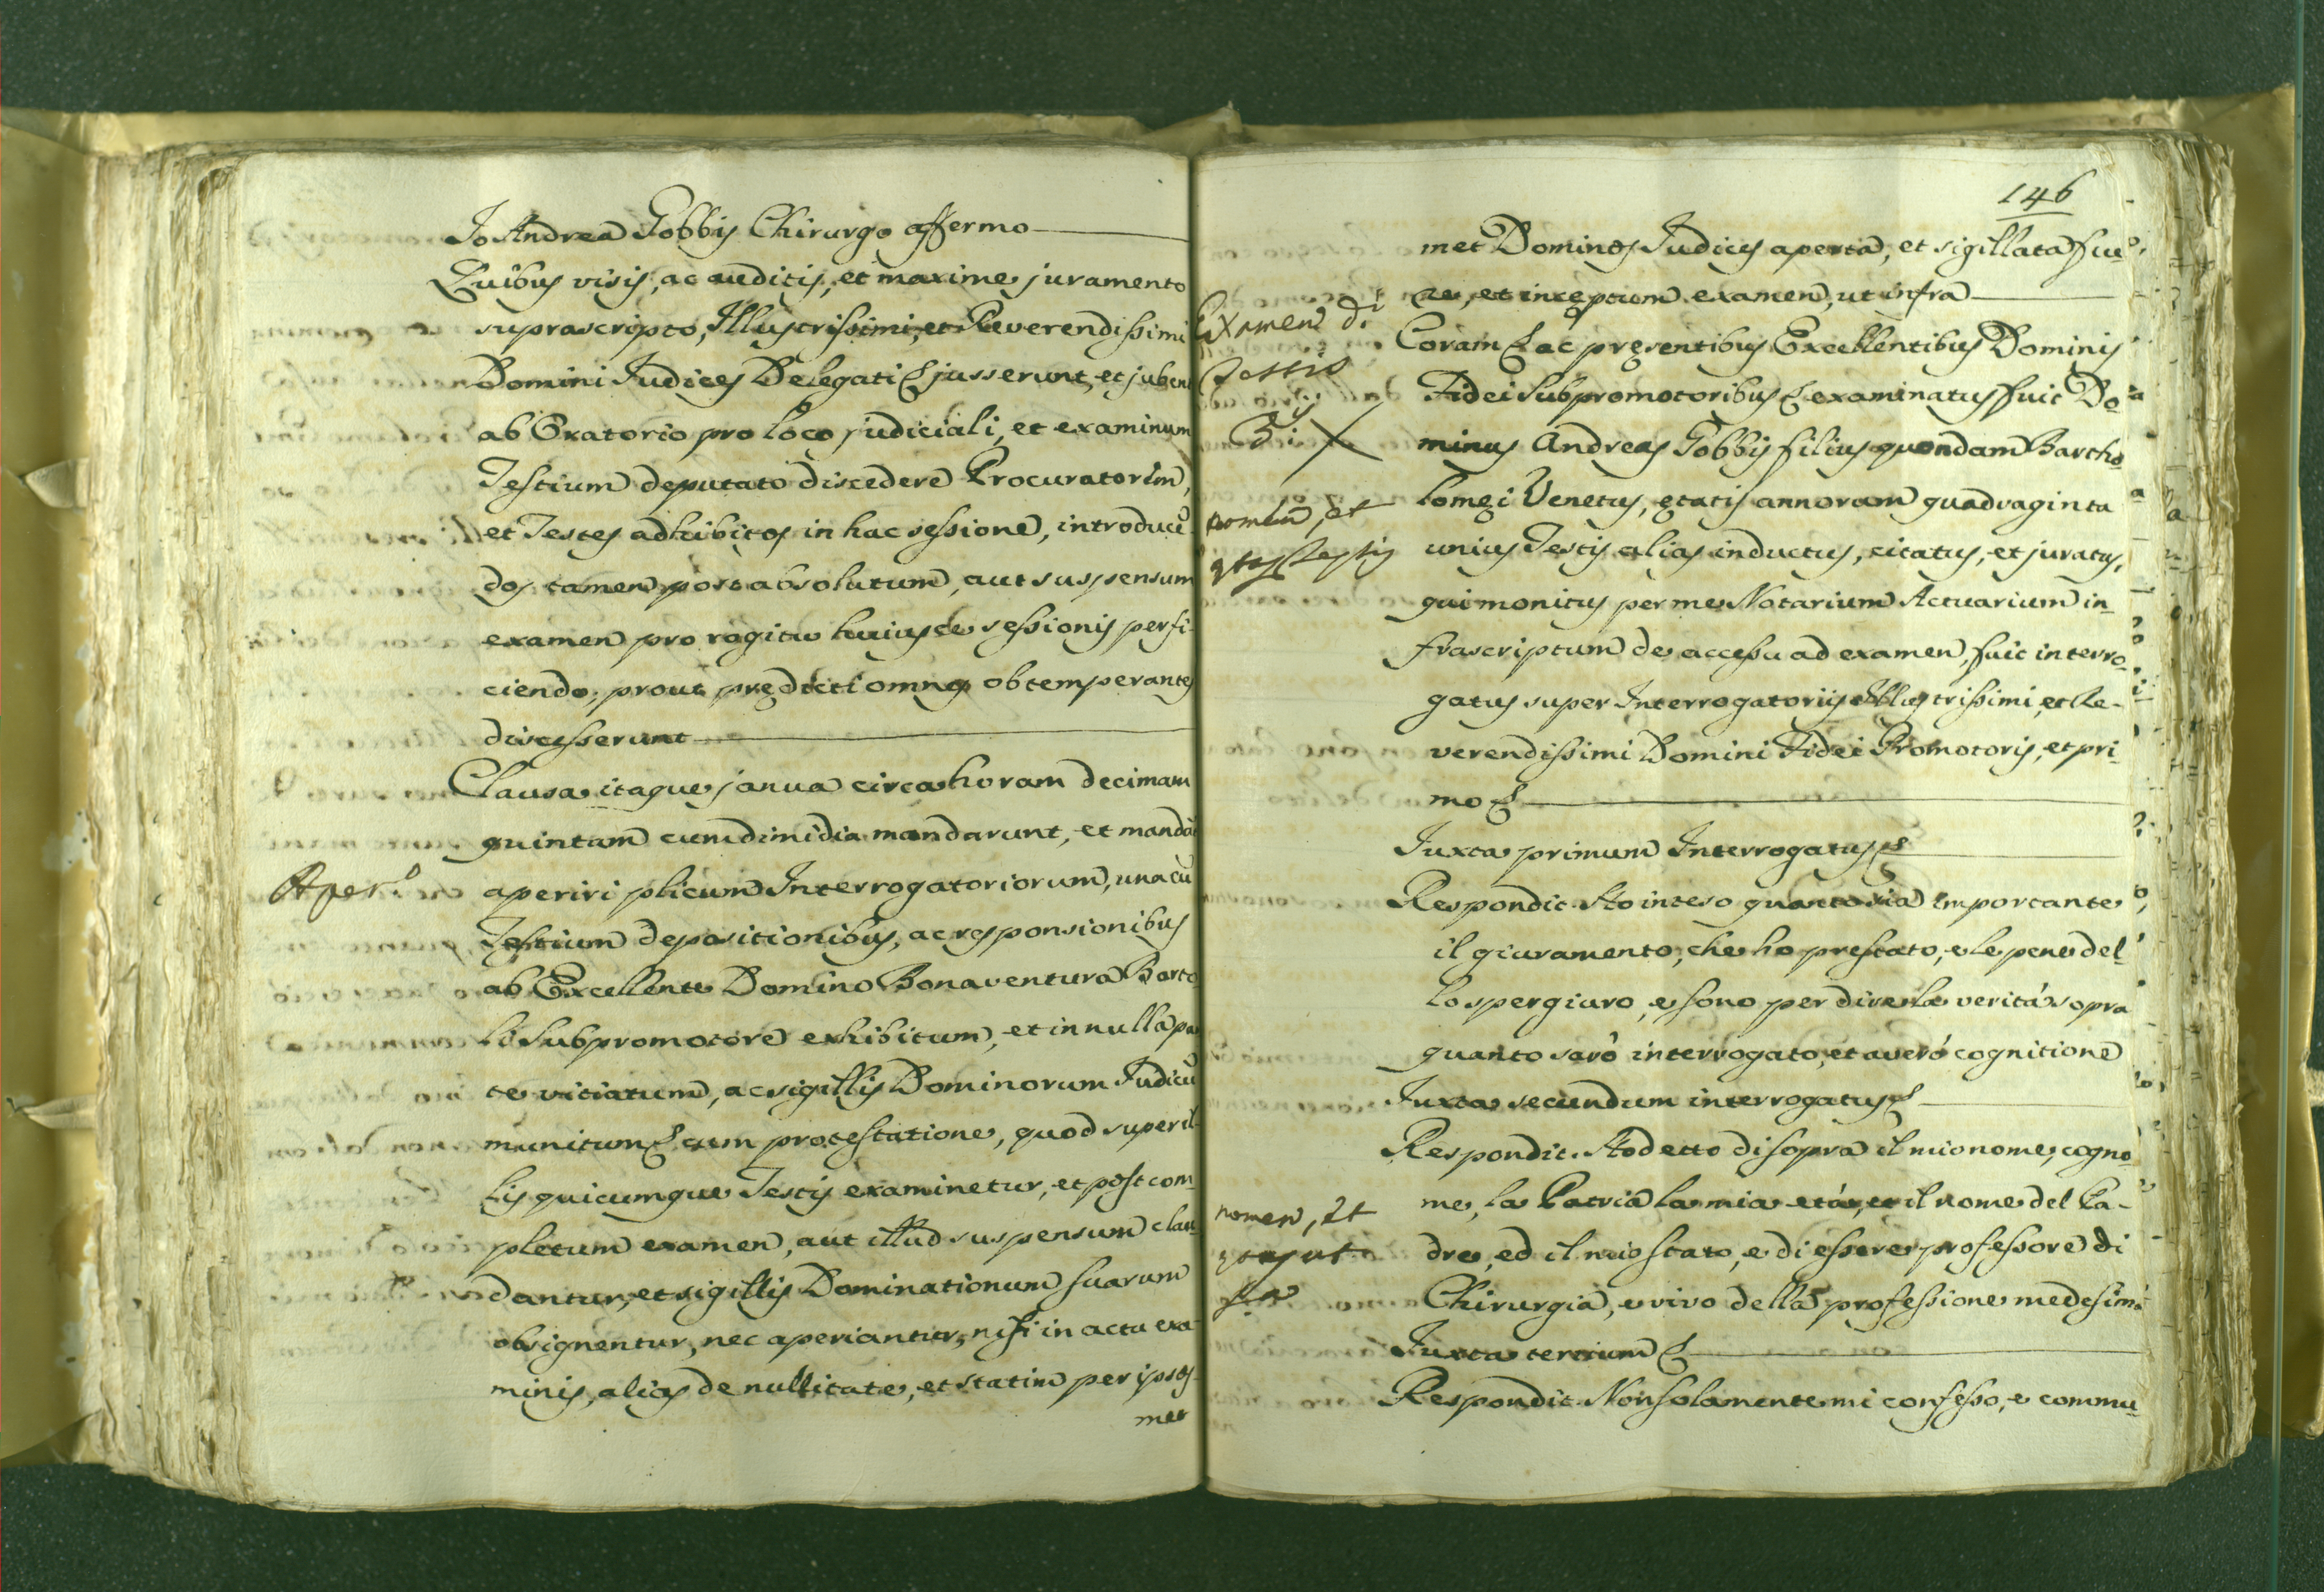 Io Andrea Gobbis Chirurgo affermo
Quibus visis, ac auditis, et maxime juramento
suprascripto, Illustrissimi, et Reverendissimi
Domini Judices Delegati & jusserunt, et jubent
ab Oratorio pro loco judiciali, et examinum
Testium deputato discedere Procuratorem,
et Testes adhibitos in hac sessione, introducen
dos tamen post absolutum, aut suspensum
examen pro rogitu huiusce sessionis perfi-
ciendo, prout prędicti omnes obtemperantes
discesserunt
Clausa itaque janua circa horam decimam
quintam cum dimidia mandarunt, et mandāt
Aper.
aperiri plicum Interrogatoriorum, una cū
Testium depositionibus, ac responsionibus
ab Excellente Domino Bonaventura Barto
li Subpromotore exhibitum, et in nulla par
te vitiatum, ac sigillis Dominorum Judicū
munitum & cum protestatione, quod super il-
lis quicumque Testis examinetur, et post com-
pletum examen, aut illud suspensum clau-
dantur, et sigillis Dominationum suarum
obsignentur, nec aperiantur, nisi in actu exa-
minis, alias de nullitate, et statim per ipsos-
met
146
met Dominos Judices aperta, et sigillata fue
re, et inceptum examen, ut infra
Examen d.
Testis
Coram & ac pręsentibus Excellentibus Dominis
Fidei Subpromotoribus & examinatus fuit Do-
minus Andreas Gobbis filius quondam Bartho
lomęi Venetus, ętatis annorum quadraginta
nomen, et
ętas Testis
unius Testis alias inductus, citatus, et juratus,
qui monitus per me Notarium Actuarium in-
frascriptum de accessu ad examen, fuit interro-
gatus super Interrogatoriis Illustrissimi, et Re-
verendissimi Domini Fidei Promotoris, et pri-
mo &
Iuxta primum Interrogatus &
Respondit. Ho inteso quanto sia importante
il giuramento, che ho prestato, e le pene del-
lo spergiuro, e sono per dire la verità sopra
quanto sarò interrogato, et averò cognitione
Iuxta secundum interrogatus &
Respondit. Ho detto di sopra il mio nome, cogno-
me, la Patria la mia età, et il nome del Pa-
nomen, et
dre, ed il mio stato, e di essere professore di
Chirurgia, e vivo della professione medesima
Iuxta tertium &
Respondit. Non solamente mi confesso, e commu-